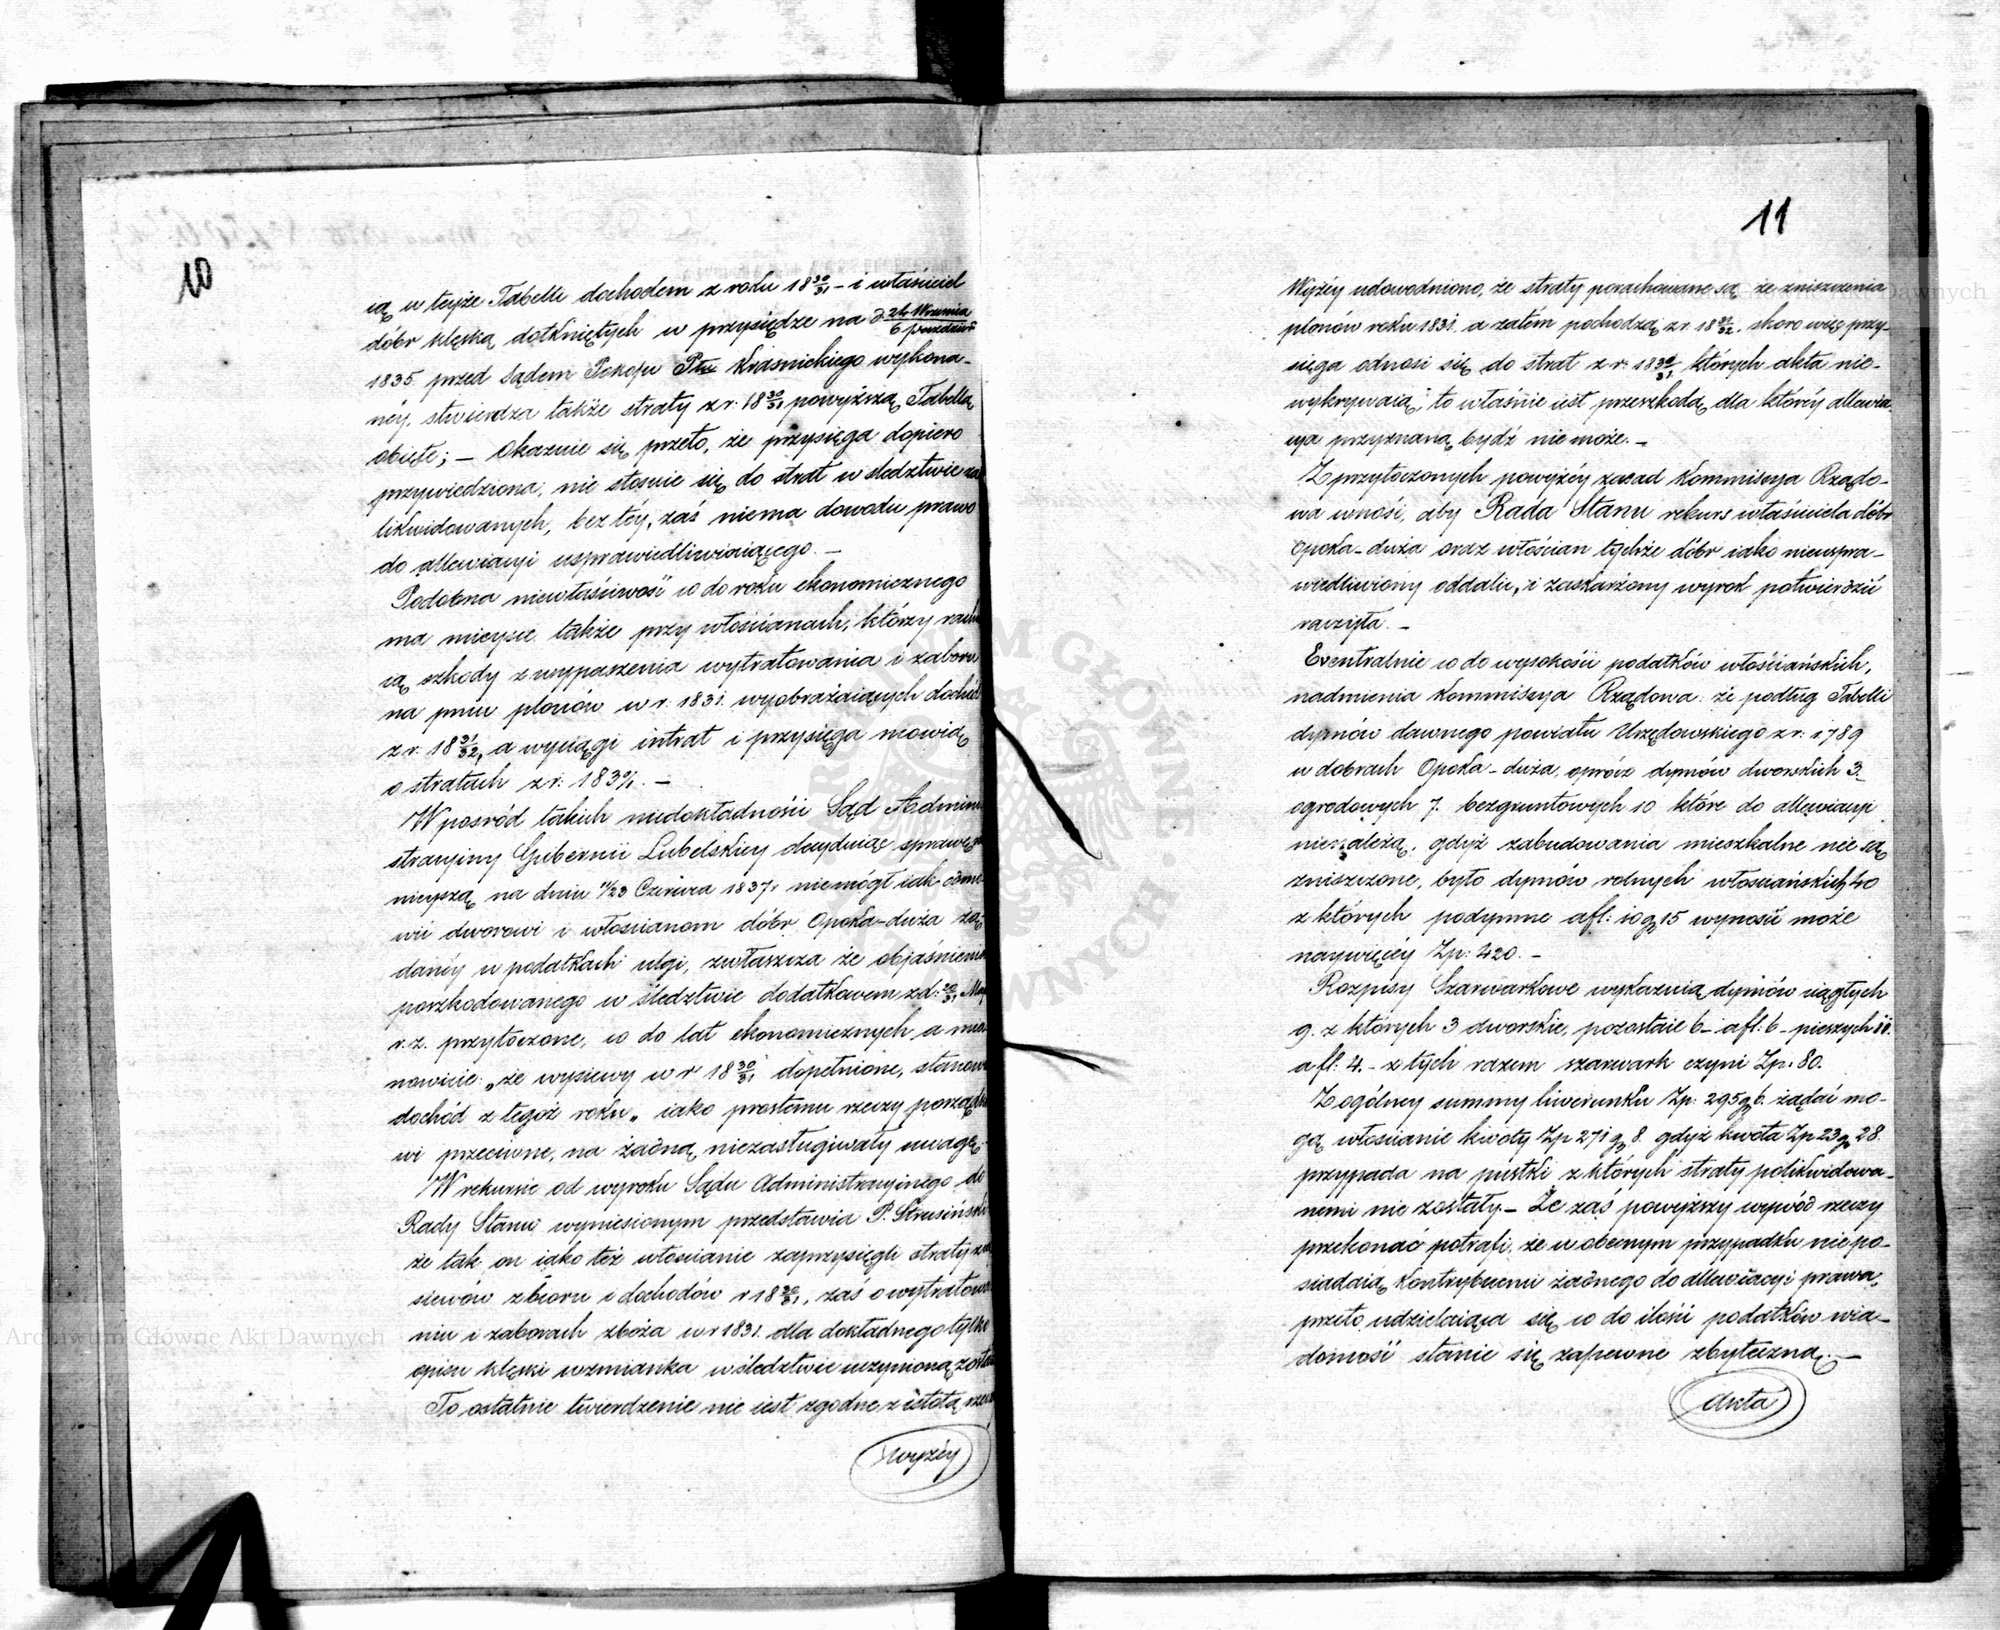 10
ią w teyże Tabelli dochodem z roku 18 30/31 – i właściciel
dóbr klęską dotkniętych w przysiędze na d. 24 Września / 6 Październ
1835 przed Sądem Pokoju Ptu Kraśnickiego wykona-
néy, stwierdza także straty z r: 18 30/31 powyższą Tabellą
objęte; – Okazuie się przeto, że przysięga dopiero
przywiedziona, nie stosuie się do strat w śledztwie za
likwidowanych, bez téy, zaś niema dowodu prawo
do allewiacyi usprawiedliwiaiącego. –
Podobna niewłaściwość co do roku ekonomicznego
ma mieysce także przy włościanach, którzy rachu
ią szkody z wypaszenia wytratowania i zaboru
na pniu plonów w r. 1831. wyobrażaiących dochód
z r: 18 31/32, a wyciągi intrat i przysięga mowią
o stratach z r: 1830/1. –
W pośród takich niedokładności Sąd Admini
stracyiny Gubernii Lubelskiey decyduiąc sprawę
nieyszą na dniu 11/23 Czerwca 1837 r niemógł iak odmó
wić dworowi i włościanom dóbr Opoka-duża żą-
danéy w podatkach ulgi, zwłaszcza że objaśnienia
poszkodowanego w śledztwie dodatkowem z d: 20/31 May
r. z. przytoczone, co do lat ekonomicznych a mia
nowicie: „że wysiewy w r 18 30/31 dopełnione, stanow
dochód z tegoż roku„ iako prostemu rzeczy porządko
wi przeciwne, na żadną niezasługiwały uwagę.
W rekursie od wyroku Sądu Administracyinego do
Rady Stanu wyniesionym przedstawia P. Strusiński
że tak on iako też włościanie zaprzysięgli straty z
siewów zbioru i dochodów r 18 30/31, zaś o wytratowa
niu i zaborach zboża w r 1831. dla dokładnego tylko
opisu klęski wzmianka w śledztwie uczynioną została
To ostatnie twierdzenie nie iest zgodne z istotą rzeczy
wyżéy
11
Wyżéy udowodniono, że straty porachowane są, ze zniszczenia
plonów roku 1831. a zatém pochodzą z r. 18 31/32. skoro więc przy-
sięga odnosi się do strat z r: 18 30/31 których akta nie-
wykrywaią, to właśnie iest przeszkodą, dla któréy allewia-
cya przyznaną bydź nie może. –
Z przytoczonych powyżéy zasad Kommissya Rządo-
wa wnosi, aby Rada Stanu rekurs właściciela dóbr
Opoka-duża oraz włościan tychże dóbr iako nieuspra-
wiedliwiony oddalić, i zaskarżony wyrok potwierdzić
raczyła. –
Eventralnie co do wysokości podatków włościańskich,
nadmienia Kommissya Rządowa: że podług Tabelli
dymów dawnego powiatu Urzędowskiego z r: 1789
w dobrach Opoka-duża, oprócz dymów dworskich 3.
ogrodowych 7. bezgruntowych 10 które do allewiacyi
nienależą, gdyż zabudowania mieszkalne nie są
zniszczone, było dymów rolnych włościańskich 40
z których podymne a fl: 10 g 15 wynosić może
naywięcéy Zp: 420. –
Rozpisy Szarwarkowe wykazuią dymów ciągłych
9. z których 3 dworskie, pozostaie 6 – a fl: 6 – pieszych 11.
a fl: 4. – z tych razem szarwark czyni Zp. 80.
Z ogólney summy liwerunku Zp: 295 g 6. żądać mo-
gą włościanie kwoty Zp 271 g 8. gdyż kwota Zp 23 g 28.
przypada na pustki z których straty polikwidowa-
nemi nie zostały – Że zaś powyższy wywód rzeczy
przekonać potrafi, że w obecnym przypadku nie po-
siadaią Kontrybuenci żadnego do allewiacyi prawa,
przeto udzielaiąca się co do ilości podatków wia-
domość stanie się zapewne zbyteczną. –
Akta
Archiwum Główne Akt Dawnych